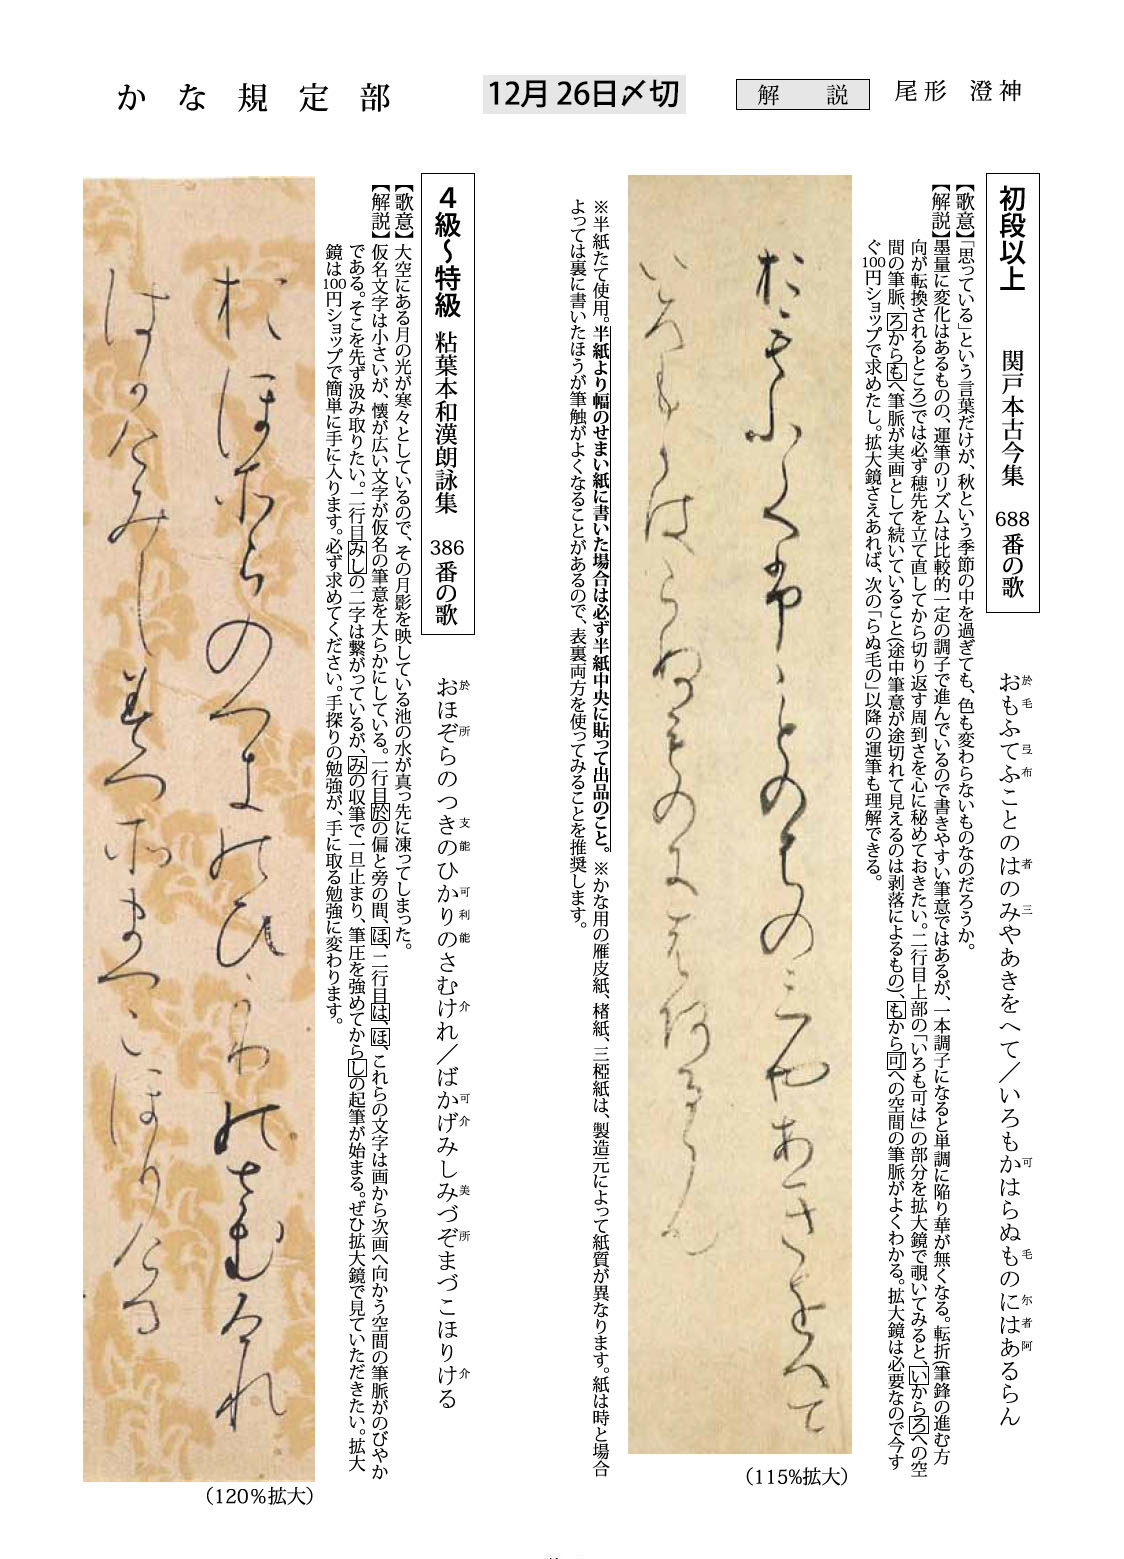 かな規定部
12月26日〆切
解説
尾形 澄神
初段以上 関戸本古今集 688番の歌
おもふてふことのはのみやあきをへて／いろもかはらぬものにはあるらん
於毛 弖布 者 三 可 毛 尓者阿
【歌意】「思っている」という言葉だけが、秋という季節の中を過ぎても、色も変わらないものなのだろうか。
【解説】墨量に変化はあるものの、運筆のリズムは比較的一定の調子で進んでいるので書きやすい筆意ではあるが、一本調子になると単調に陥り華が無くなる。転折（筆鋒の進む方
向が転換されるところ）では必ず穂先を立て直してから切り返す周到さを心に秘めておきたい。二行目上部の「いろも可は」の部分を拡大鏡で覗いてみると、いからろへの空
間の筆脈、ろからもへ筆脈が実画として続いていること（途中筆意が途切れて見えるのは剥落によるもの）、もから可への空間の筆脈がよくわかる。拡大鏡は必要なので今す
ぐ100円ショップで求めたし。拡大鏡さえあれば、次の「らぬ毛の」以降の運筆も理解できる。
於もふ弖布ことの者の三やあきをへて
いろも可はらぬ毛の尓者阿るらん
（115%拡大）
※半紙たて使用。半紙より幅のせまい紙に書いた場合は必ず半紙中央に貼って出品のこと。※かな用の雁皮紙、楮紙、三椏紙は、製造元によって紙質が異なります。紙は時と場合
よっては裏に書いたほうが筆触がよくなることがあるので、表裏両方を使ってみることを推奨します。
４級〜特級 粘葉本和漢朗詠集 386番の歌
おほぞらのつきのひかりのさむけれ／ばかげみしみづぞまづこほりける
於 所 支能 可利能 介 可介 美 所 介
【歌意】大空にある月の光が寒々としているので、その月影を映している池の水が真っ先に凍ってしまった。
【解説】仮名文字は小さいが、懐が広い文字が仮名の筆意を大らかにしている。一行目於の偏と旁の間、ほ、二行目は、ほ、これらの文字は画から次画へ向かう空間の筆脈がのびやか
である。そこを先ず汲み取りたい。二行目みしの二字は繋がっているが、みの収筆で一旦止まり、筆圧を強めてからしの起筆が始まる。ぜひ拡大鏡で見ていただきたい。拡大
鏡は100円ショップで簡単に手に入ります。必ず求めてください。手探りの勉強が、手に取る勉強に変わります。
於ほ所らのつ支能ひ可利能さむ介れ
は可介みし美つ所まつこほり介る
（120%拡大）